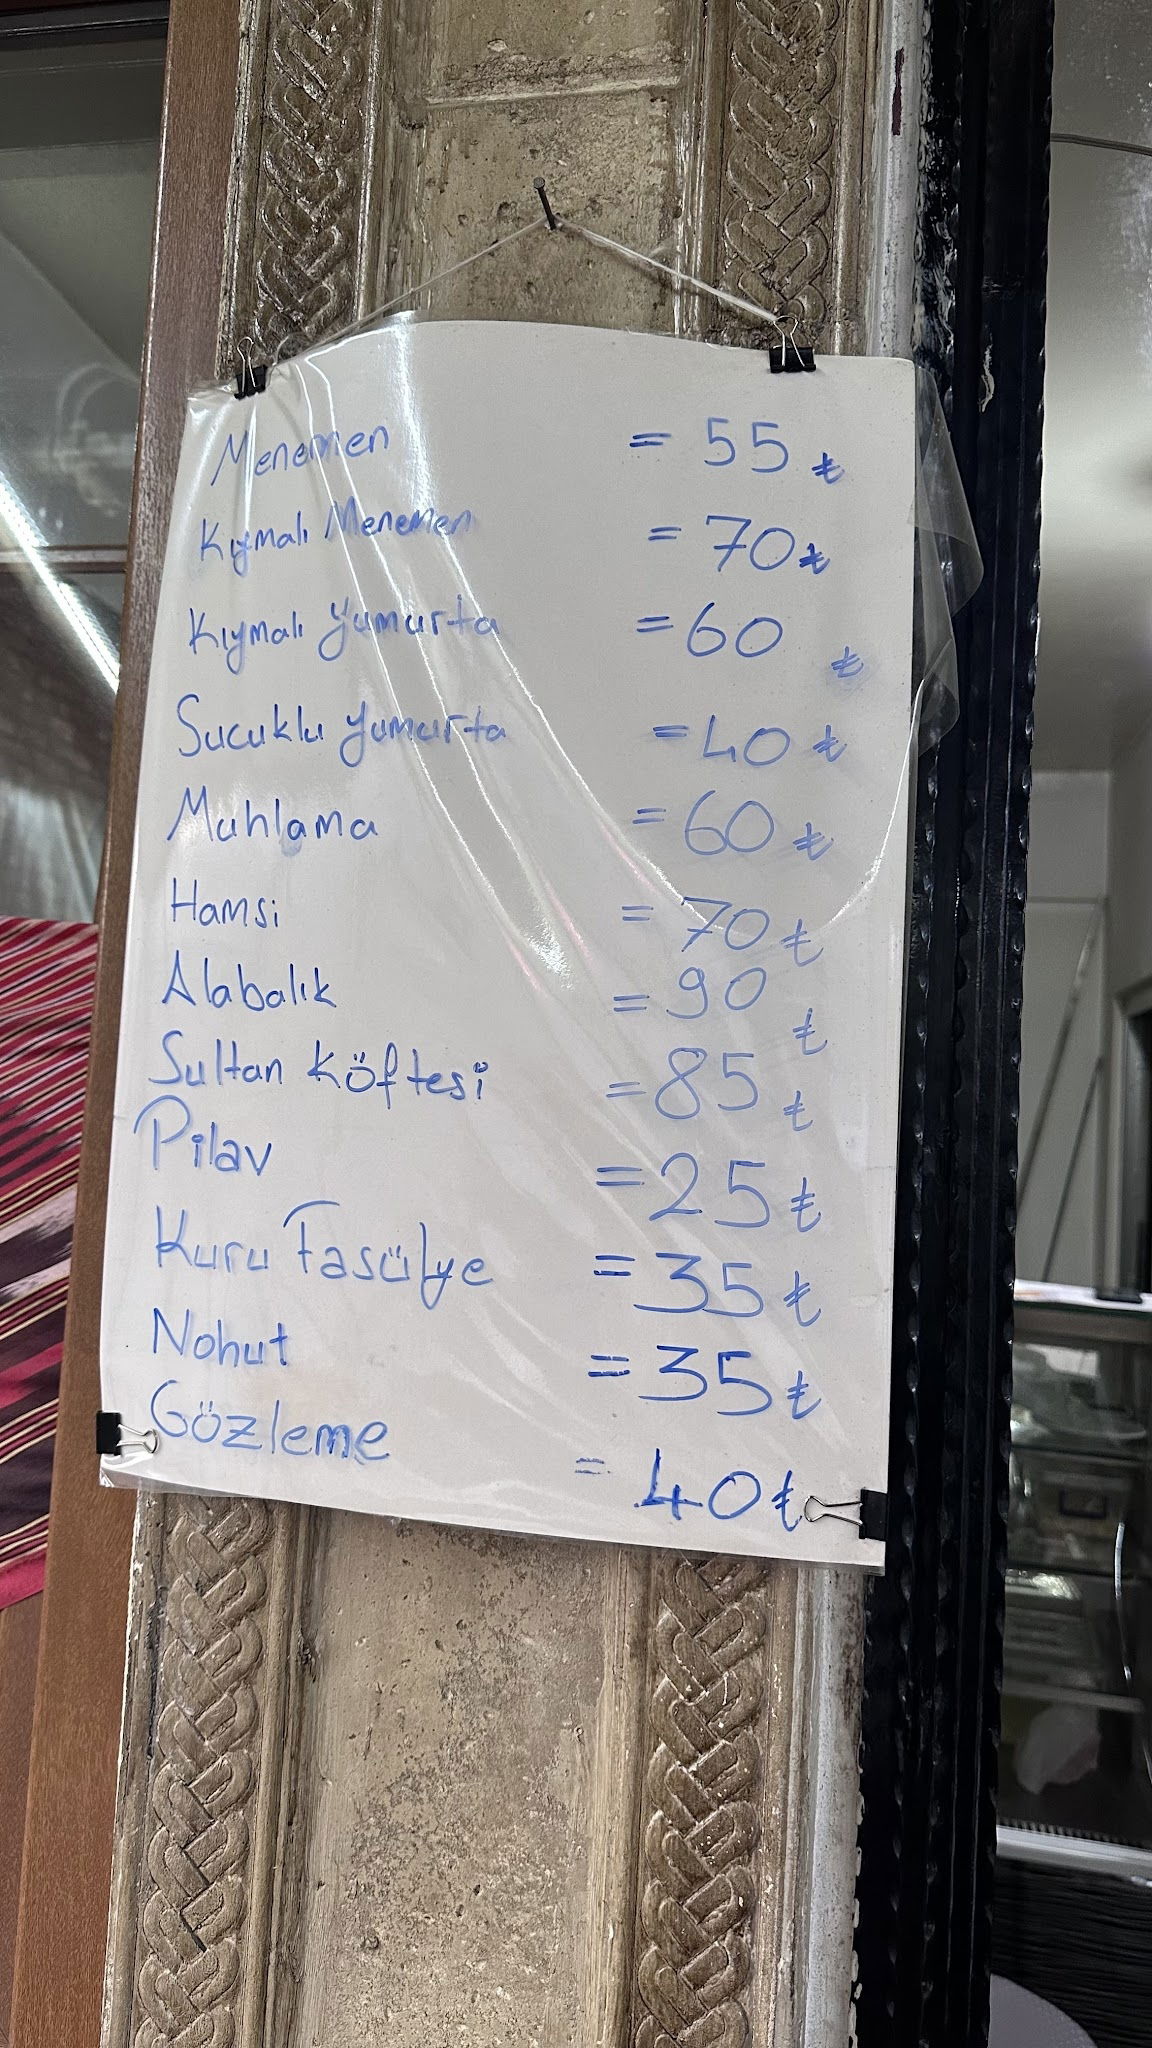 Menemen = 55 ₺
Kıymalı Menemen = 70 ₺
Kıymalı Yumurta = 60 ₺
Sucuklu Yumurta = 40 ₺
Muhlama = 60 ₺
Hamsi = 70 ₺
Alabalık = 90 ₺
Sultan Köftesi = 85 ₺
Pilav = 25 ₺
Kuru Fasülye = 35 ₺
Nohut = 35 ₺
Gözleme = 40 ₺